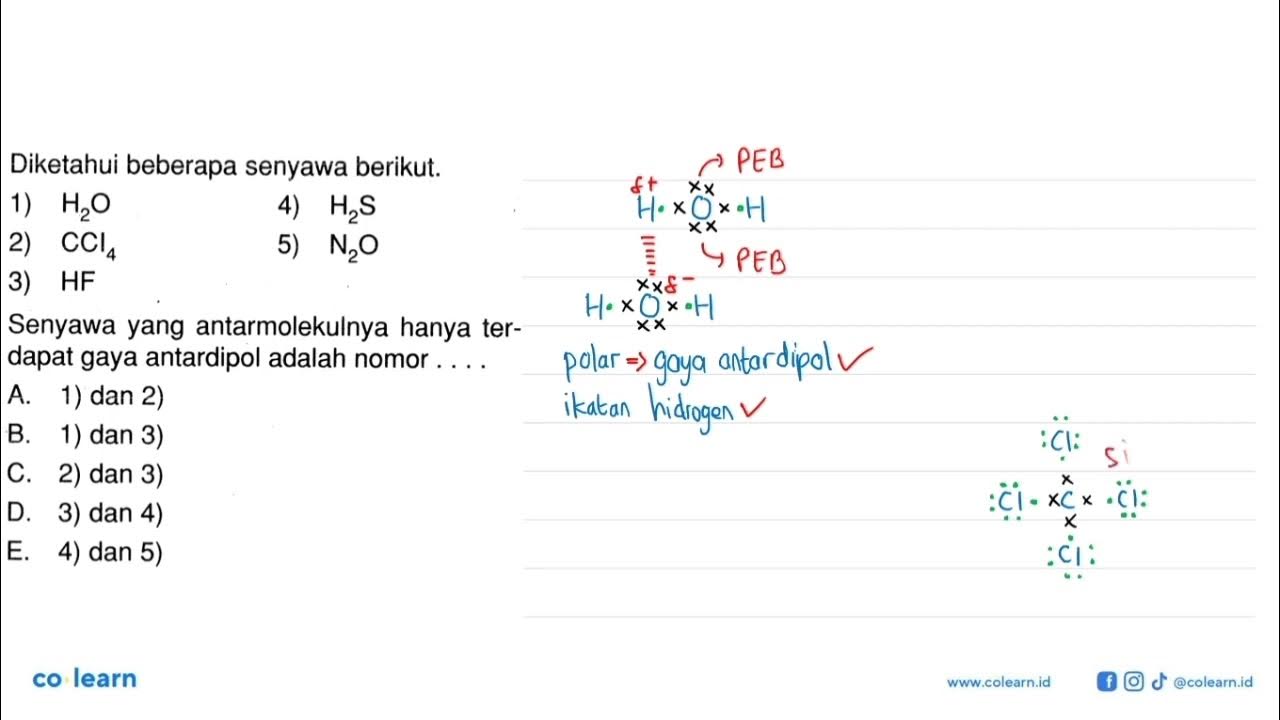 Diketahui beberapa senyawa berikut.
1) H₂O 4) H₂S
2) CCl₄ 5) N₂O
3) HF
Senyawa yang antarmolekulnya hanya ter-
dapat gaya antardipol adalah nomor . . . .
A. 1) dan 2)
B. 1) dan 3)
C. 2) dan 3)
D. 3) dan 4)
E. 4) dan 5)
PEB
δ+
H O H
PEB
δ-
H O H
polar => gaya antardipol ✓
ikatan hidrogen ✓
Cl
Si
Cl C Cl
Cl
co learn
www.colearn.id @colearn.id